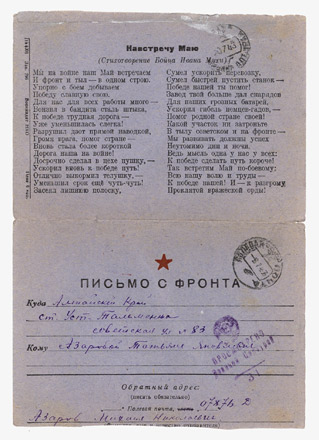 Навстречу Маю
(Стихотворение Бойца Ивана
Мы на войне наш Май встречаем
И фронт и тыл — в одном строю.
Упорно с боем добываем
Победу славную свою.
Для нас для всех работы много —
Вонзил в бандита сталь штыка,
К победе трудная дорога —
Уже уменьшилась слегка!
Разрушил дзот прямой наводкой,
Громя врага, помог стране —
Вновь стала более короткой
Дорога наша на войне!
Досрочно сделал в цехе пушку, —
Ускорил вновь к победе путь!
Отлично выкормил телушку, —
Уменьшил срок ещё чуть-чуть!
Засеял лишнюю полоску,
Сумел ускорить перевозку,
Сумел быстрей пустить станок —
Победе нашей ты помог!
Завод твой больше дал снарядов
Для наших грозных батарей, —
Ускорил гибель немцев-гадов,
Помог родной стране своей!
Какой участок ни затронем:
В тылу советском и на фронте —
Мы развивать должны успех
Неутомимо дни и ночи.
Ведь мысль одна у нас у всех:
К победе сделать путь короче!
Так встретим Май по-боевому:
Всю нашу волю и труды —
К победе нашей! И — к разгрому
Проклятой вражеской орды!
ПОЛЕВАЯ ПОЧТА
ПИСЬМО С ФРОНТА
Куда Алтайский Край
ст. Уст. Тальменка
советская ул № 83
Кому Азаровой Татьяне
ПРОСМОТРЕНО
Военной Цензурой
Обратный адрес:
(писать обязательно)
Полевая почта,
Азаров Михаил Николаевич